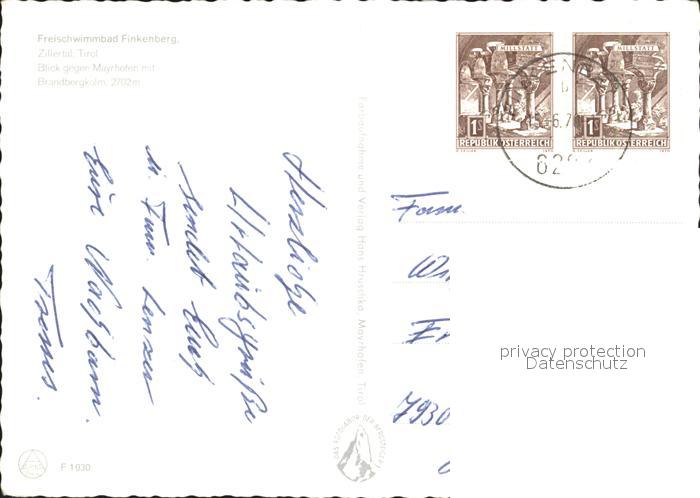 Freischwimmbad Finkenberg,
Zillertal, Tirol
Blick gegen Mayrhofen mit
Brandbergkolm, 2702m
MILLSTATT
1S
REPUBLIK ÖSTERREICH
1970
MILLSTATT
1S
REPUBLIK ÖSTERREICH
1970
Farbaufnahme und Verlag Hans Hruschka, Mayrhofen, Tirol
Herzliche
Urlaubsgrüße
sendet Euch
Eure Nachbarn
Fam.
7930
privacy protection
Datenschutz
F 1030